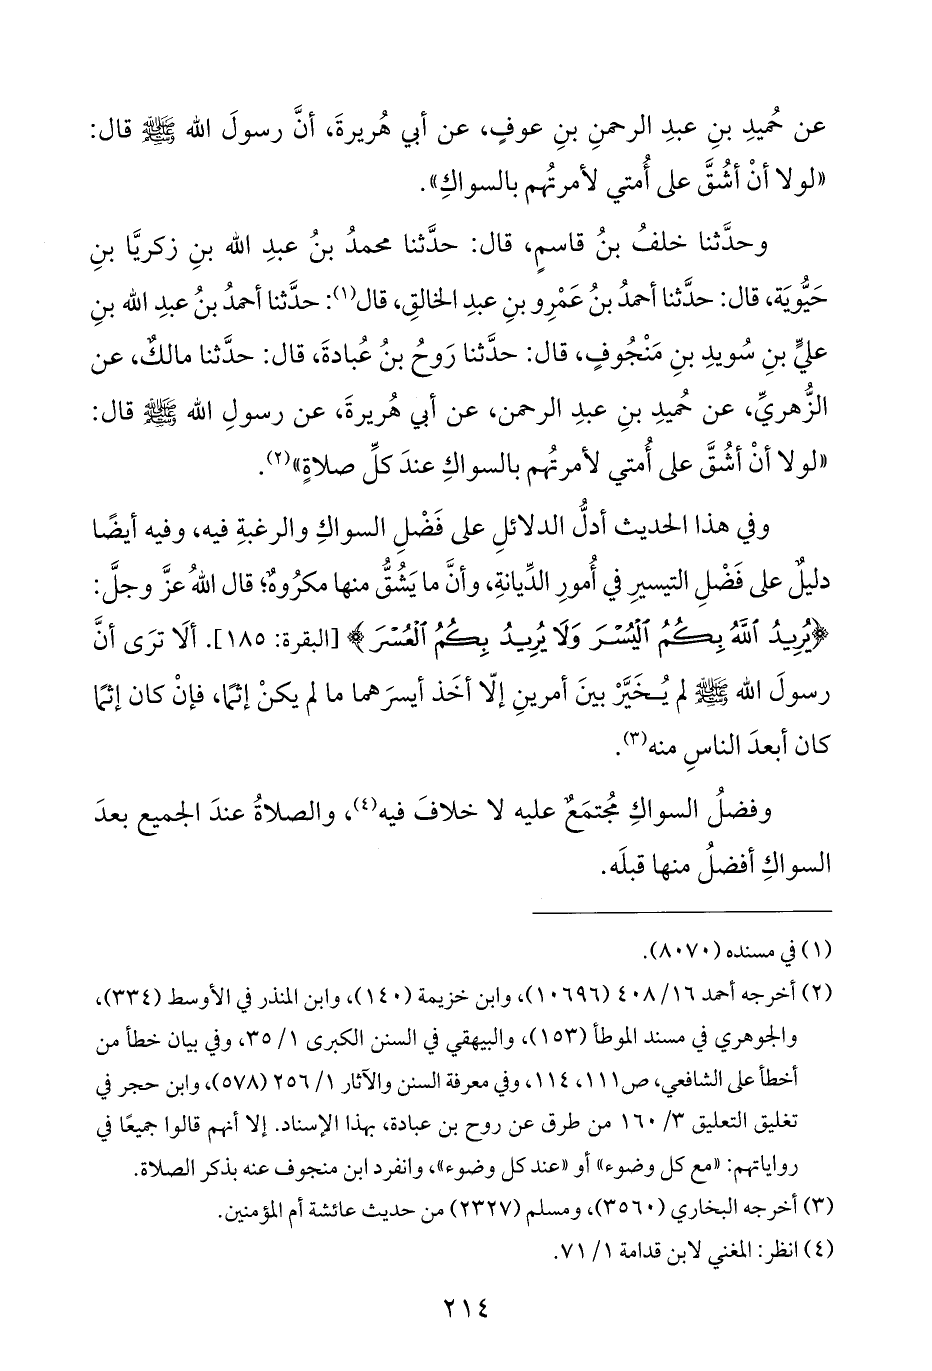 عن حُميدِ بنِ عبدِ الرحمنِ بنِ عوفٍ، عن أبي هُريرةَ، أنَّ رسولَ الله ﷺ قال:
«لولا أنْ أشُقَّ على أُمتي لأمرتُهم بالسواكِ».
وحدَّثنا خلفُ بنُ قاسمٍ، قال: حدَّثنا محمدُ بنُ عبدِ الله بنِ زكريَّا بنِ
حَيُّويَة، قال: حدَّثنا أحمدُ بنُ عَمْرِو بنِ عبدِ الخالقِ، قال(١): حدَّثنا أحمدُ بنُ عبدِ الله بنِ
عليِّ بنِ سُويدِ بنِ مَنْجُوفٍ، قال: حدَّثنا رَوحُ بنُ عُبادةَ، قال: حدَّثنا مالكٌ، عن
الزُّهريِّ، عن حُميدِ بنِ عبدِ الرحمن، عن أبي هُريرةَ، عن رسولِ الله ﷺ قال:
«لولا أنْ أشُقَّ على أُمتي لأمرتُهم بالسواكِ عندَ كلِّ صلاةٍ»(٢).
وفي هذا الحديث أدلُّ الدلائلِ على فَضْلِ السواكِ والرغبةِ فيه، وفيه أيضًا
دليلٌ على فَضْلِ التيسيرِ في أُمورِ الدِّيانةِ، وأنَّ ما يَشُقُّ منها مكرُوهٌ؛ قال اللهُ عزَّ وجلَّ:
﴿يُرِيدُ ٱللَّهُ بِكُمُ ٱلْيُسْرَ وَلَا يُرِيدُ بِكُمُ ٱلْعُسْرَ﴾ [البقرة: ١٨٥]. ألَا ترَى أنَّ
رسولَ الله ﷺ لم يُـخَيَّرْ بينَ أمرينِ إلّا أخَذ أيسرَهما ما لم يكنْ إثمًا، فإنْ كان إثمًا
كان أبعدَ الناسِ منه(٣).
وفضلُ السواكِ مُجتمَعٌ عليه لا خلافَ فيه(٤)، والصلاةُ عندَ الجميع بعدَ
السواكِ أفضلُ منها قبلَه.
(١) في مسنده (٨٠٧٠).
(٢) أخرجه أحمد ١٦/ ٤٠٨ (١٠٦٩٦)، وابن خزيمة (١٤٠)، وابن المنذر في الأوسط (٣٣٤)،
والجوهري في مسند الموطأ (١٥٣)، والبيهقي في السنن الكبرى ١/ ٣٥، وفي بيان خطأ من
أخطأ على الشافعي، ص١١١، ١١٤، وفي معرفة السنن والآثار ١/ ٢٥٦ (٥٧٨)، وابن حجر في
تغليق التعليق ٣/ ١٦٠ من طرق عن روح بن عبادة، بهذا الإسناد. إلا أنهم قالوا جميعًا في
رواياتهم: «مع كل وضوء» أو «عند كل وضوء»، وانفرد ابن منجوف عنه بذكر الصلاة.
(٣) أخرجه البخاري (٣٥٦٠)، ومسلم (٢٣٢٧) من حديث عائشة أم المؤمنين.
(٤) انظر: المغني لابن قدامة ١/ ٧١.
٢١٤